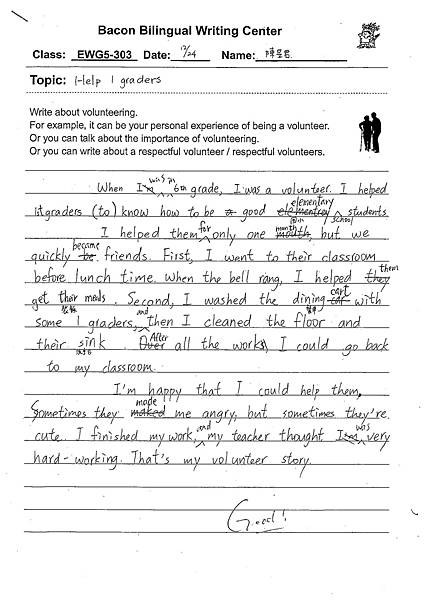 Bacon Bilingual Writing Center
Class: EWG5-303 Date: 12/24 Name: 陳昱君
Topic: Help 1 graders
Write about volunteering.
For example, it can be your personal experience of being a volunteer.
Or you can talk about the importance of volunteering.
Or you can write about a respectful volunteer / respectful volunteers.
was in
When I 6th grade, I was a volunteer. I helped
elementary
1st graders (to) know how to be a good students
school
for month
I helped them only one but we
became
quickly be friends. First, I went to their classroom
them
before lunch time. When the bell rang, I helped they
get their meals. Second, I washed the dining cart with
and
some 1 graders, then I cleaned the floor and
After
their sink. Over all the works, I could go back
to my classroom.
I'm happy that I could help them,
made
Sometimes they maked me angry, but sometimes they're
and was
cute. I finished my work, my teacher thought I very
hard-working. That's my volunteer story.
Good!